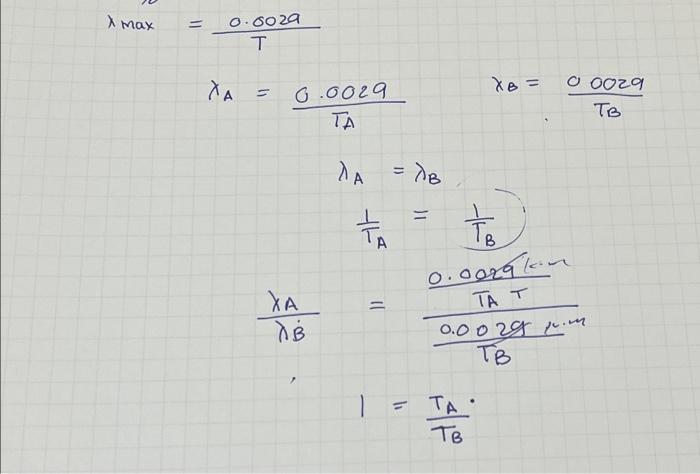 λmax = 0.0029 / T
λA = 0.0029 / TA λB = 0 0029 / TB
λA = λB
1 / TA = 1 / TB
λA / λB = 0.0029 k·m / TA T / 0.0029 k·m / TB
1 = TA / TB